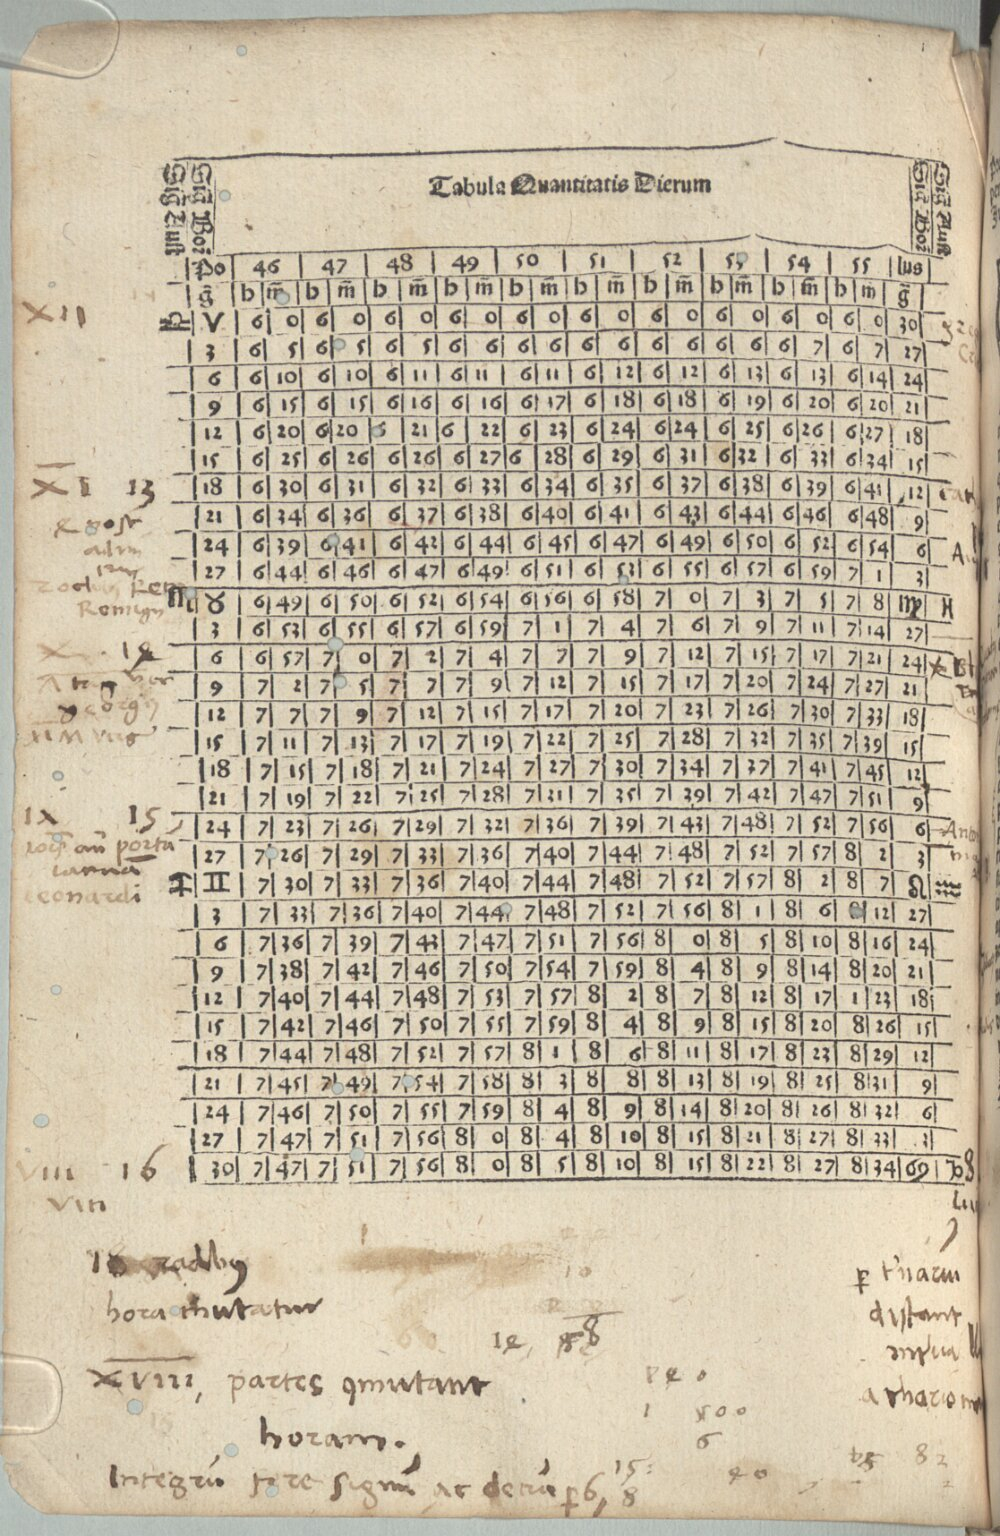 Tabula Quantitatis Dierum
Sig Aust
Sig Bor
Sig Bor
Sig Aust
Po 46 47 48 49 50 51 52 53 54 55 lus
g̃ h m̃ h m̃ h m̃ h m̃ h m̃ h m̃ h m̃ h m̃ h m̃ h m̃ g̃
♎ ♈ 6 0 6 0 6 0 6 0 6 0 6 0 6 0 6 0 6 0 6 0 30
3 6 5 6 5 6 5 6 6 6 6 6 6 6 6 6 6 6 7 6 7 27
6 6 10 6 10 6 11 6 11 6 11 6 12 6 12 6 13 6 13 6 14 24
9 6 15 6 15 6 16 6 16 6 17 6 18 6 18 6 19 6 20 6 20 21
12 6 20 6 20 6 21 6 22 6 23 6 24 6 24 6 25 6 26 6 27 18
15 6 25 6 26 6 26 6 27 6 28 6 29 6 31 6 32 6 33 6 34 15
18 6 30 6 31 6 32 6 33 6 34 6 35 6 37 6 38 6 39 6 41 12
21 6 34 6 36 6 37 6 38 6 40 6 41 6 43 6 44 6 46 6 48 9
24 6 39 6 41 6 42 6 44 6 45 6 47 6 49 6 50 6 52 6 54 6
27 6 44 6 46 6 47 6 49 6 51 6 53 6 55 6 57 6 59 7 1 3
♏ ♉ 6 49 6 50 6 52 6 54 6 56 6 58 7 0 7 3 7 5 7 8 ♍ ♓
3 6 53 6 55 6 57 6 59 7 1 7 4 7 6 7 9 7 11 7 14 27
6 6 57 7 0 7 2 7 4 7 7 7 9 7 12 7 15 7 17 7 21 24
9 7 2 7 5 7 7 7 9 7 12 7 15 7 17 7 20 7 24 7 27 21
12 7 7 7 9 7 12 7 15 7 17 7 20 7 23 7 26 7 30 7 33 18
15 7 11 7 13 7 17 7 19 7 22 7 25 7 28 7 32 7 35 7 39 15
18 7 15 7 18 7 21 7 24 7 27 7 30 7 34 7 37 7 41 7 45 12
21 7 19 7 22 7 25 7 28 7 31 7 35 7 39 7 42 7 47 7 51 9
24 7 23 7 26 7 29 7 32 7 36 7 39 7 43 7 48 7 52 7 56 6
27 7 26 7 29 7 33 7 36 7 40 7 44 7 48 7 52 7 57 8 2 3
♐ ♊ 7 30 7 33 7 36 7 40 7 44 7 48 7 52 7 57 8 2 8 7 ♌ ♒
3 7 33 7 36 7 40 7 44 7 48 7 52 7 56 8 1 8 6 8 12 27
6 7 36 7 39 7 43 7 47 7 51 7 56 8 0 8 5 8 10 8 16 24
9 7 38 7 42 7 46 7 50 7 54 7 59 8 4 8 9 8 14 8 20 21
12 7 40 7 44 7 48 7 53 7 57 8 2 8 7 8 12 8 17 1 23 18
15 7 42 7 46 7 50 7 55 7 59 8 4 8 9 8 15 8 20 8 26 15
18 7 44 7 48 7 52 7 57 8 1 8 6 8 11 8 17 8 23 8 29 12
21 7 45 7 49 7 54 7 58 8 3 8 8 8 13 8 19 8 25 8 31 9
24 7 46 7 50 7 55 7 59 8 4 8 9 8 14 8 20 8 26 8 32 6
27 7 47 7 51 7 56 8 0 8 4 8 10 8 15 8 21 8 27 8 33 3
30 7 47 7 51 7 56 8 0 8 5 8 10 8 15 8 22 8 27 8 34 ♋ ♑
XII
XI 13
Remigii
X 14
georgii
IX 15
leonardi
VIII 16
hora mutatur
XVIII, partes 9mutant
horam.
Integrū fere signū ac
distant